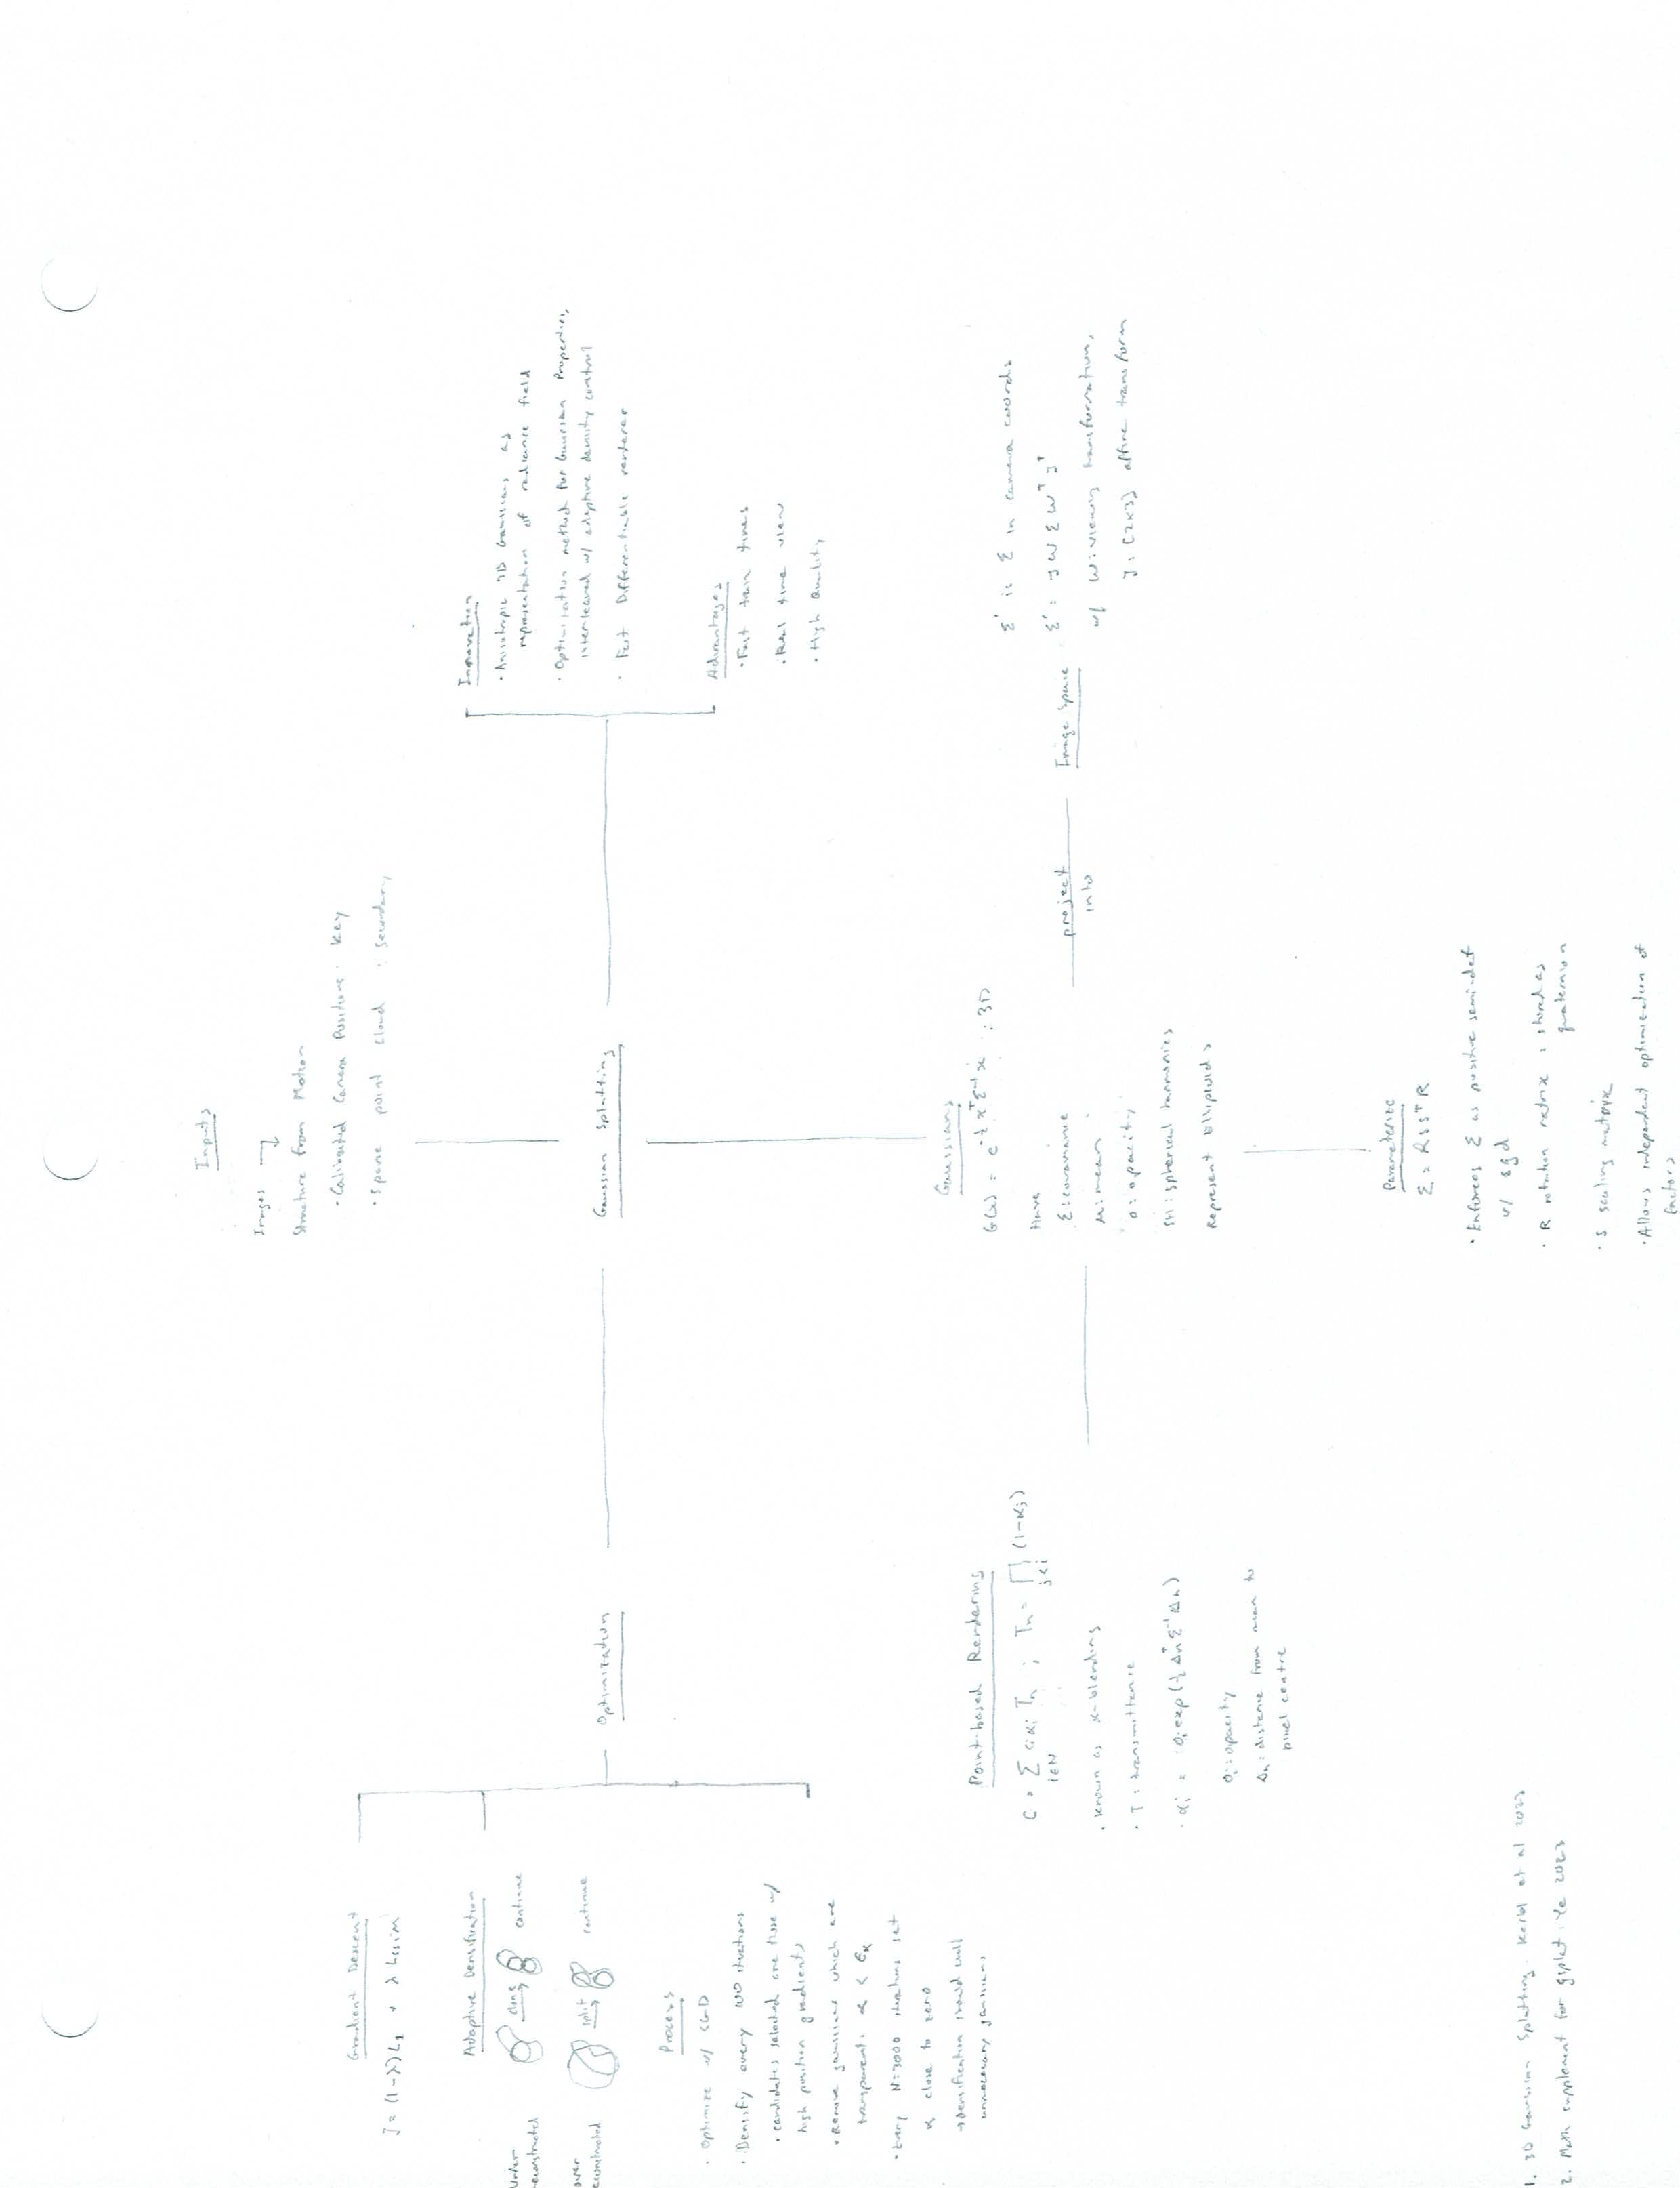 Inputs
Images
Structure from Motion
· Calibrated Camera Positions · Key
· Sparse point cloud : secondary
Gradient Descent
J = (1-λ)L1 + λ Lssim
Adaptive Densification
under
reconstructed
clone
continue
over
reconstructed
split
continue
Process
· Optimize w/ SGD
· Densify every 100 iterations
· candidates selected are those w/
high position gradients
· Remove gaussians which are
transparent: α < ϵα
· Every N=3000 iterations set
α close to zero
→ densification should cull
unnecessary gaussians
Optimization
Gaussian Splatting
Innovation
· Anisotropic 3D Gaussians as
representation of radiance field
· Optimization method for Gaussian Properties,
interleaved w/ adaptive density control
· Fast Differentiable renderer
Advantages
· Fast train times
· Real time view
· High Quality
Point-based Rendering
C = ∑i∈N ciαi Tn ; Tn = ∏j<i (1-αj)
· Known as α-blending
· T : transmittance
· αi = oi exp(½ Δnᵀ Σ⁻¹ Δn)
oi : opacity
Δn : distance from mean to
pixel centre
Gaussians
G(x) = e^-½ xᵀ Σ⁻¹ x : 3D
Have
Σ : covariance
μ : mean
o : opacity
SH : spherical harmonics
Represent Ellipsoids
project
into
Image Space
Σ' is Σ in camera coords
Σ' = J W Σ Wᵀ Jᵀ
w/ W : viewing transformation,
J : [2x3] affine transform
Parameterize
Σ = R S Sᵀ R
· Enforces Σ as positive semi-def
w/ sgd
· R rotation matrix : stored as
quaternion
· S scaling matrix
· Allows independent optimization of
factors
1. 3D Gaussian Splatting. Kerbl et al 2023
2. Math supplement for gsplat. Ye 2023